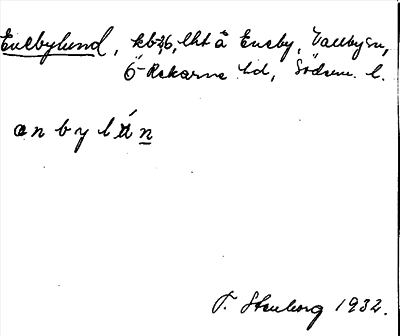 Enebylund, kb 76, lht å Eneby, Vallby sn,
Ö-Rekarne hd, Södem. l.
enbylún
T. Stenborg 1932.